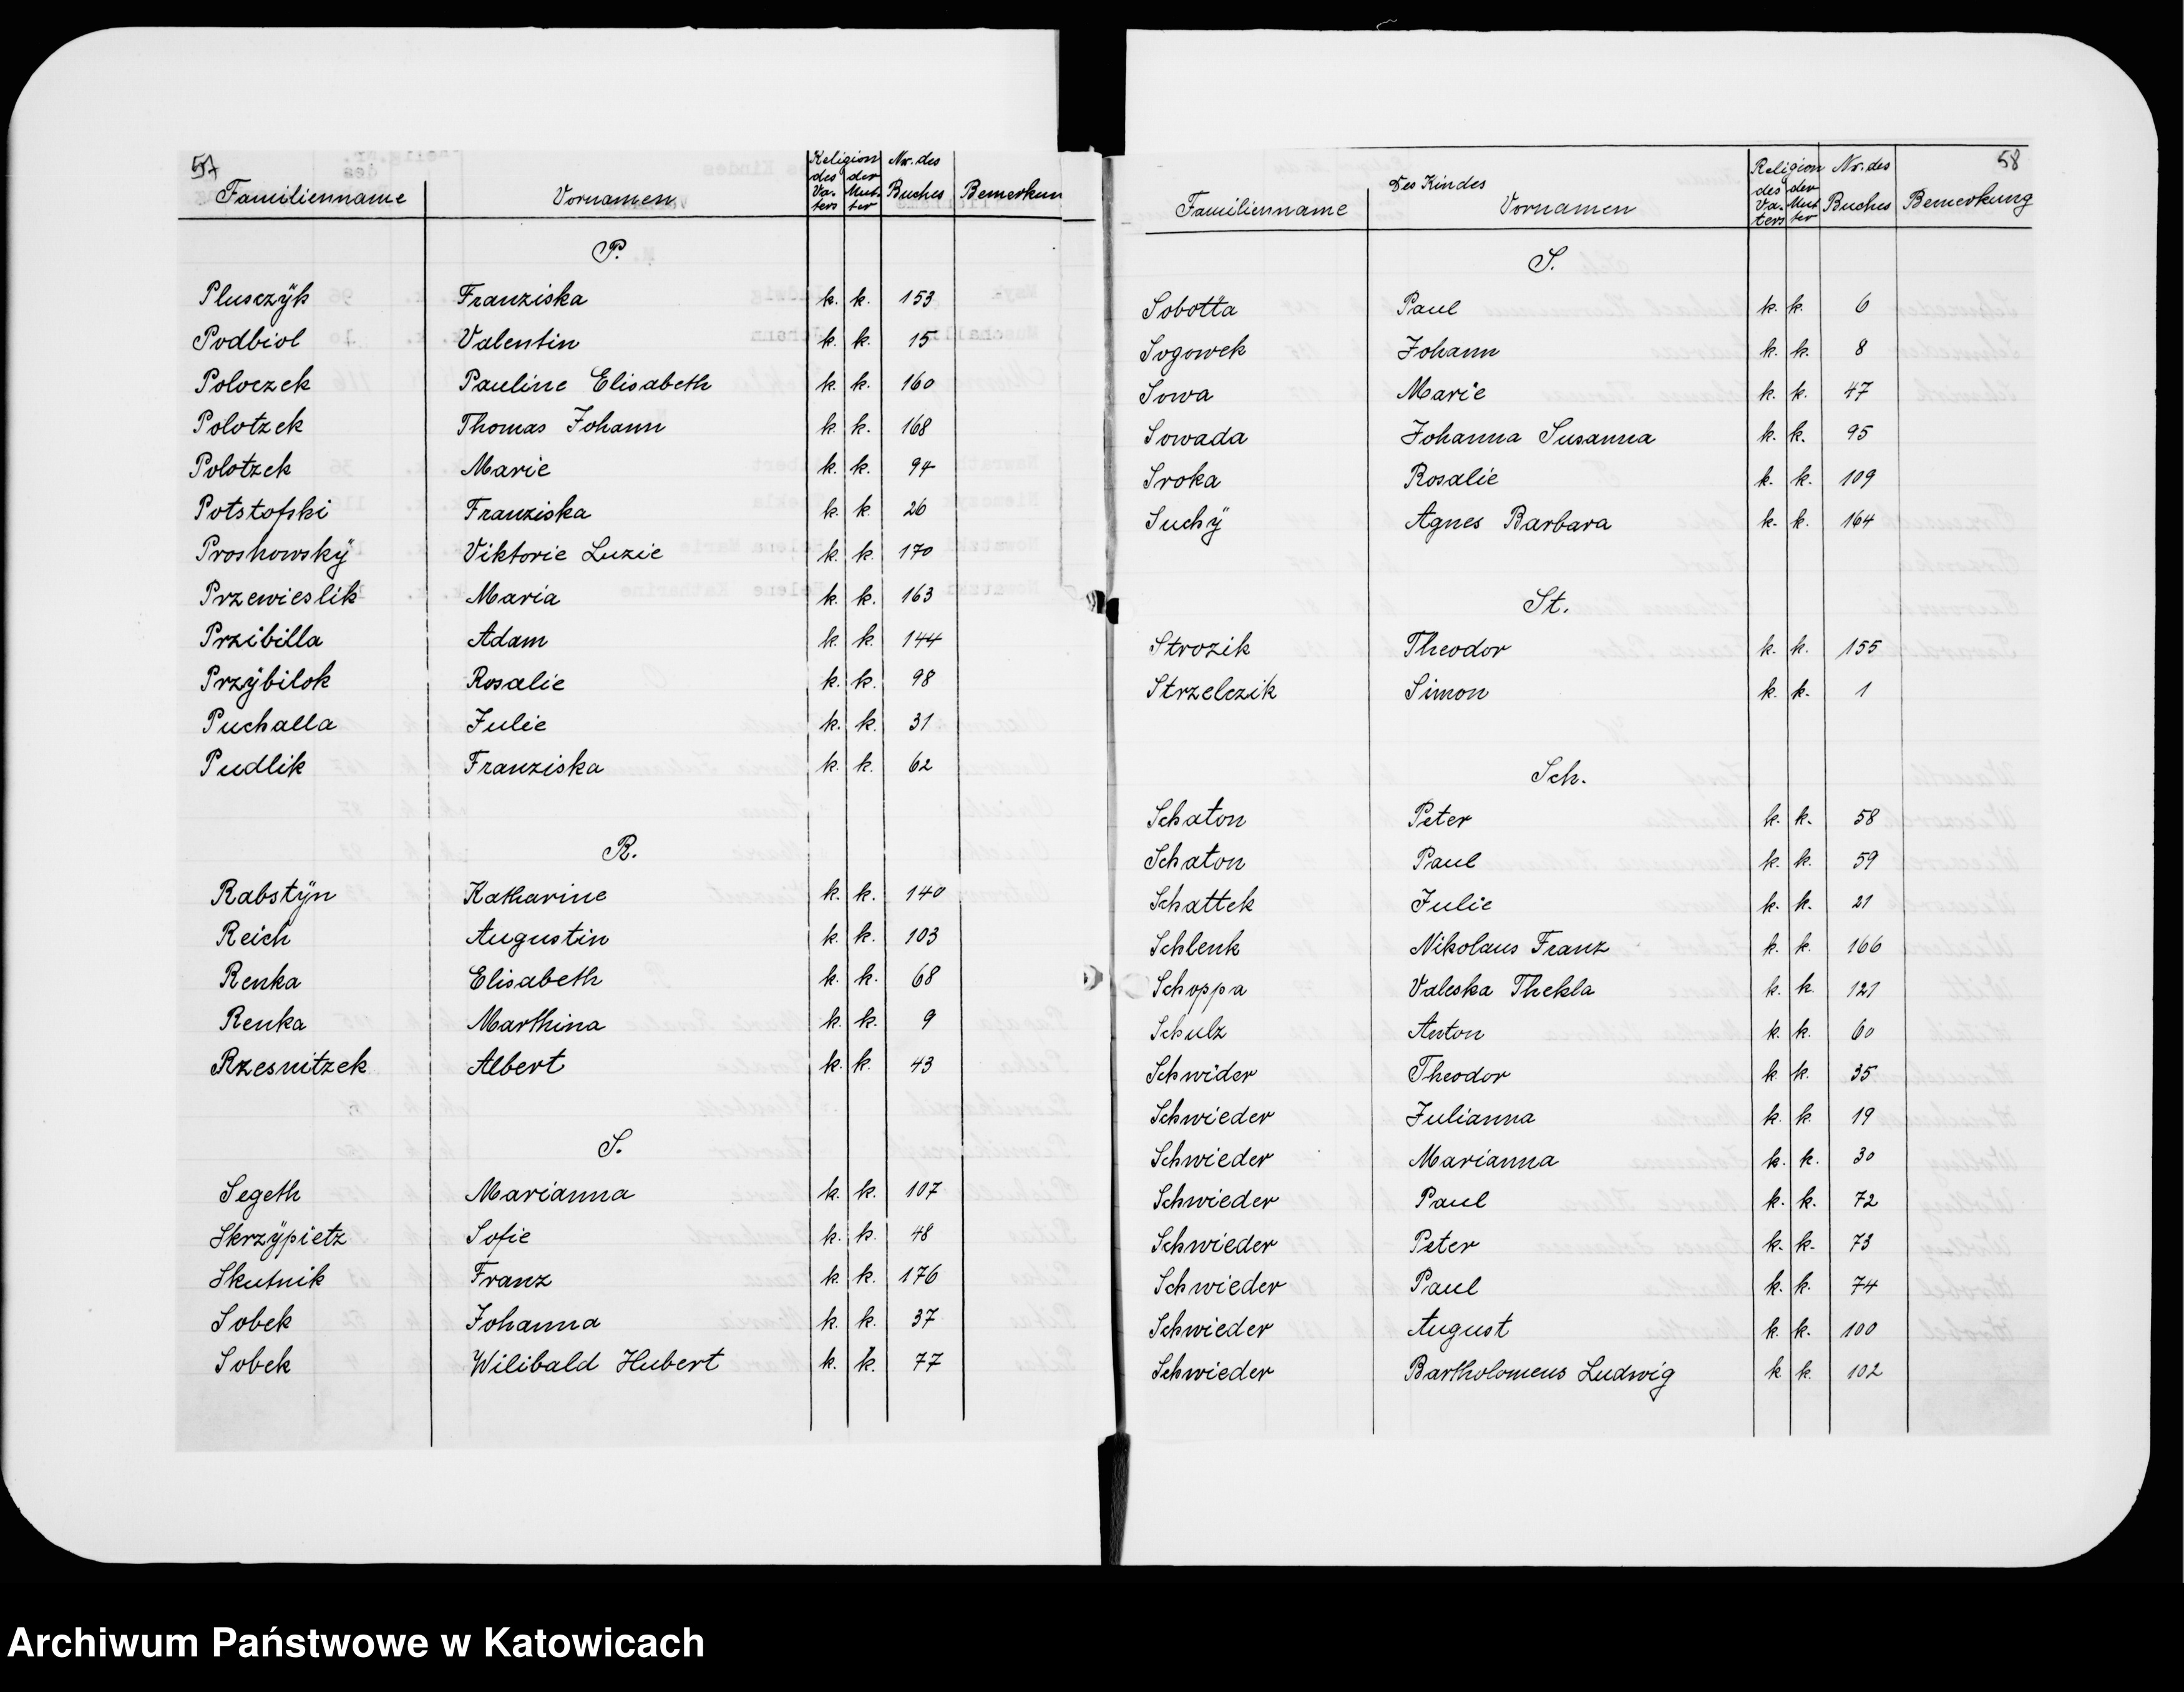 57
Familienname Vornamen Religion des Vaters der Mutter Nr. des Buches Bemerkun
P.
Plusczÿk Franziska k. k. 153
Podbiol Valentin k. k. 15
Poloczek Pauline Elisabeth k. k. 160
Polotzek Thomas Johann k. k. 168
Polotzek Marie k. k. 94
Potstofski Franziska k. k 26
Proskowskÿ Viktorie Luzie k. k. 170
Przewieslik Maria k. k. 163
Przibilla Adam k. k. 144
Przÿbilok Rosalie k. k. 98
Puchalla Julie k. k. 31
Pudlik Franziska k. k. 62
R.
Rabstÿn Katharine k. k. 140
Reich Augustin k. k. 103
Renka Elisabeth k. k. 68
Renka Marthina k. k. 9
Rzesnitzek Albert k. k. 43
S.
Segeth Marianna k. k. 107
Skrzÿpietz Sofie k. k. 48
Skutnik Franz k. k. 176
Sobek Johanna k. k. 37
Sobek Wilibald Hubert k. k. 77
58
Des Kindes
Familienname Vornamen Religion des Vaters der Mutter Nr. des Buches Bemerkung
S.
Sobotta Paul k. k. 6
Sogowek Johann k. k. 8
Sowa Marie k. k. 47
Sowada Johanna Susanna k. k. 95
Sroka Rosalie k. k. 109
Suchÿ Agnes Barbara k. k. 164
St.
Strozik Theodor k. k. 155
Strzelczik Simon k. k. 1
Sch.
Schaton Peter k. k. 58
Schaton Paul k. k. 59
Schattek Julie k. k. 21
Schlenk Nikolaus Franz k. k. 166
Schoppa Valeska Thekla k. k. 121
Schulz Anton k. k. 60
Schwider Theodor k. k. 35
Schwieder Julianna k. k. 19
Schwieder Marianna k. k. 30
Schwieder Paul k. k. 72
Schwieder Peter k. k. 73
Schwieder Paul k. k. 74
Schwieder August k. k. 100
Schwieder Bartholomeus Ludwig k k. 102
Archiwum Państwowe w Katowicach